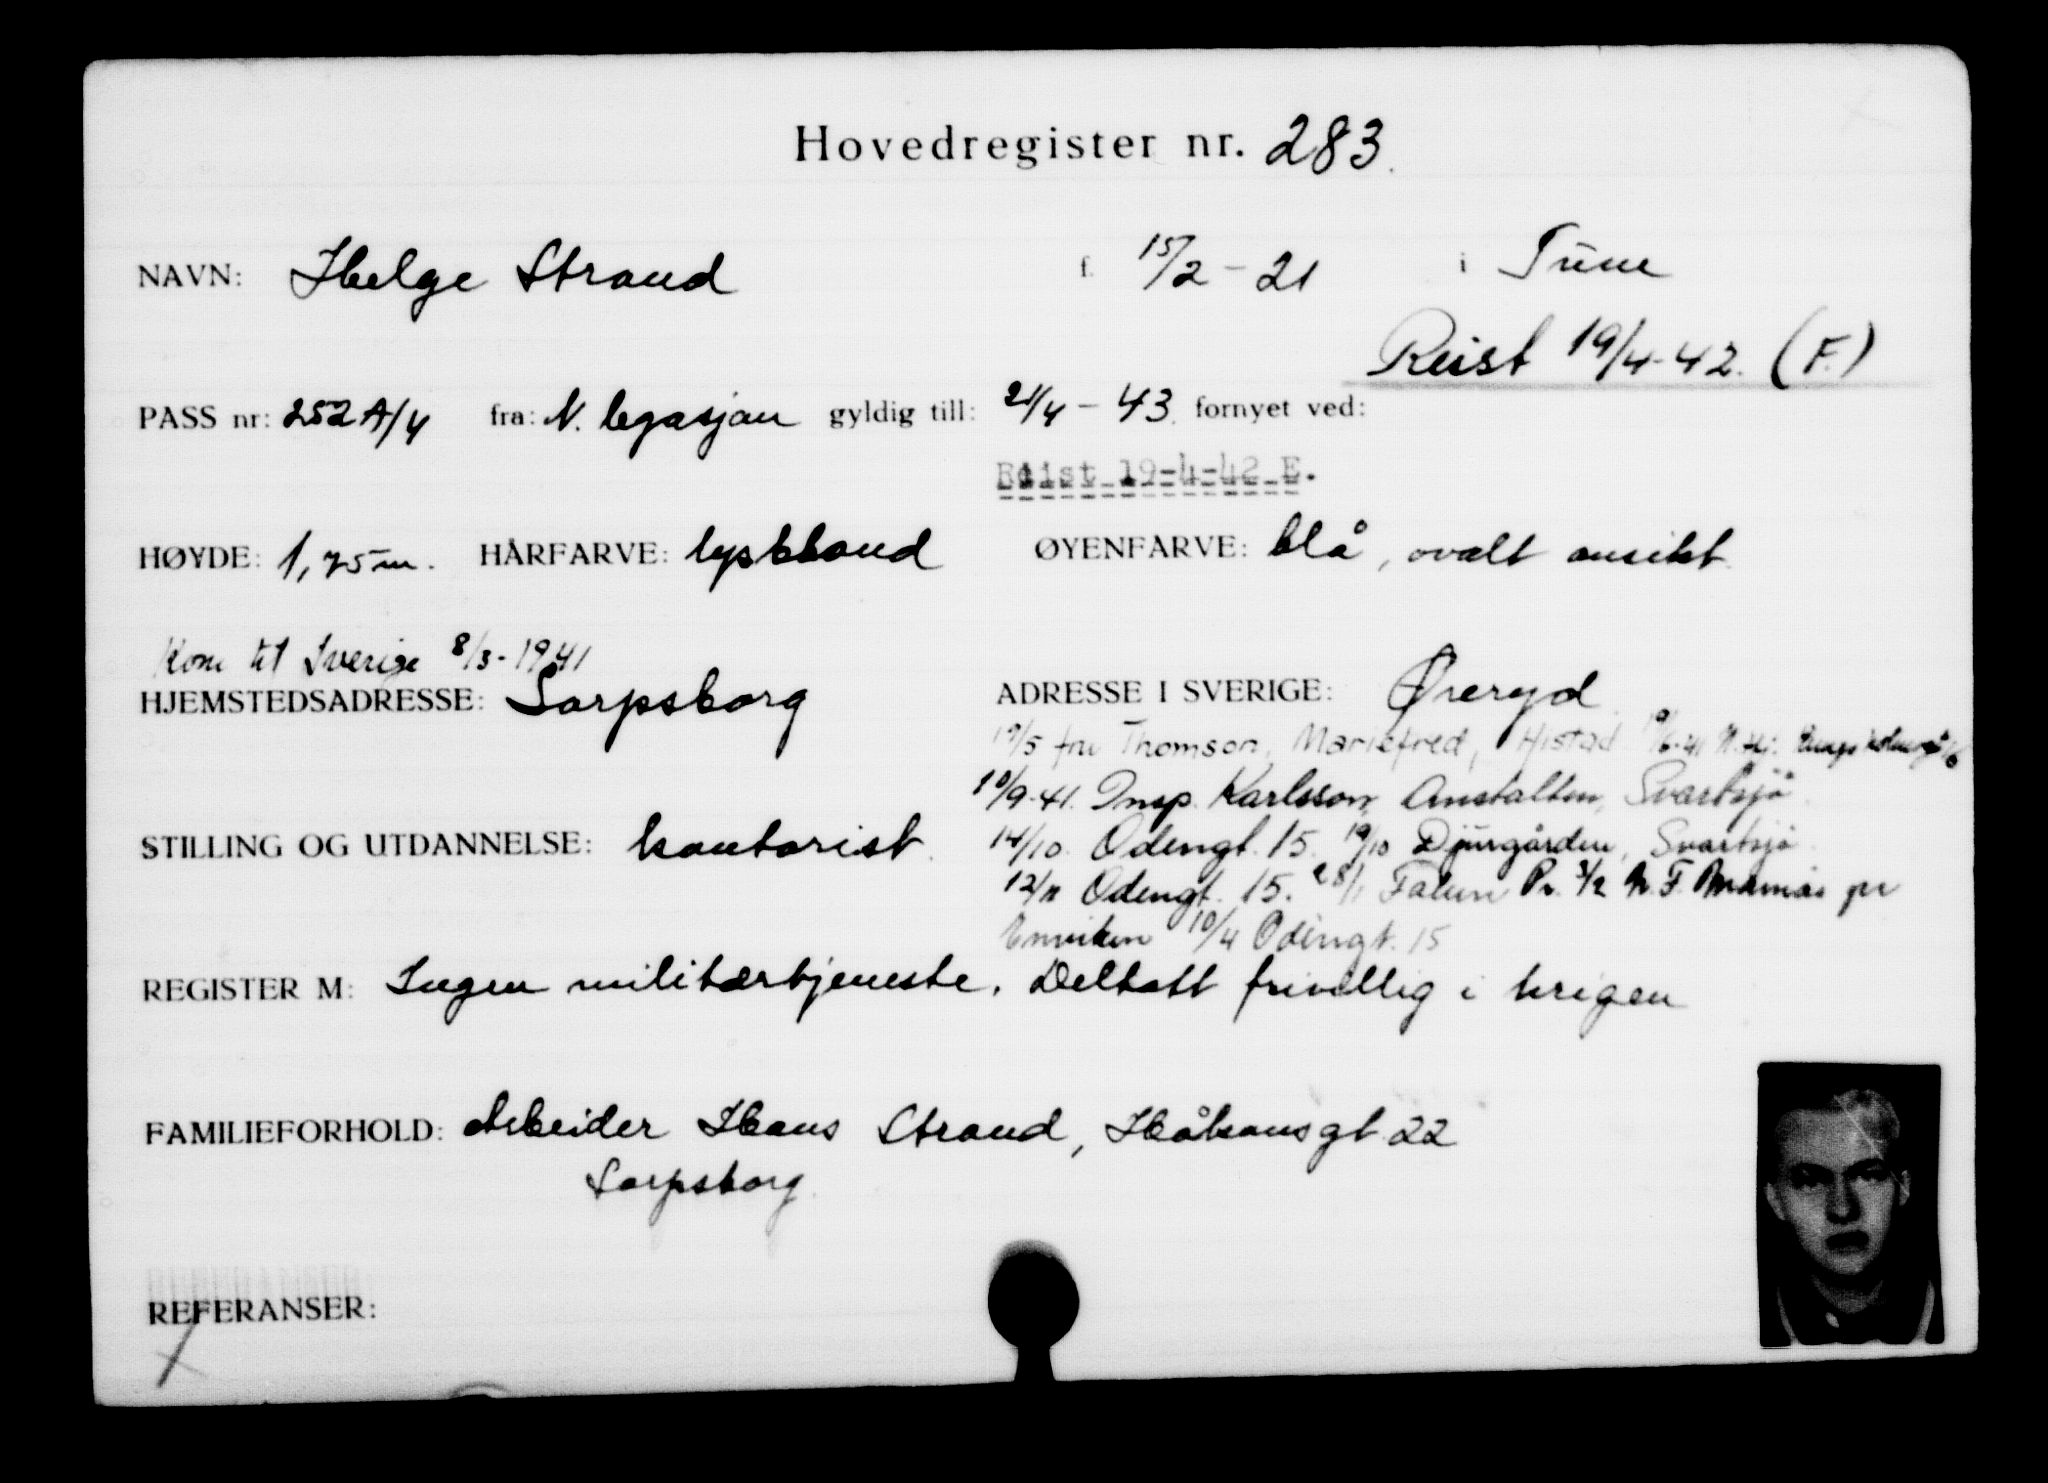 Hovedregister nr. 283.
NAVN: Helge Strand f. 15/2 - 21 i Tune
Reist 19/4-42. (F.)
PASS nr: 252 A/4 fra: N. legasjon gyldig till: 21/4 - 43. fornyet ved:
Reist 19-4-42 E.
HØYDE: 1,75 m. HÅRFARVE: lysblond ØYENFARVE: blå, ovalt ansikt.
Kom til Sverige 8/3-1941
HJEMSTEDSADRESSE: Sarpsborg ADRESSE I SVERIGE: Øreryd
19/5 fru Thomson, Mariefred, 6-41 N. Hj.
10/9-41. Insp. Karlsson, Anstalten, Svartsjö
STILLING OG UTDANNELSE: kontorist. 14/10. Odengt. 15. 19/10 Djurgården, Svartsjö.
12/11 Odengt. 15. 28/1 Falun Pr. 3/2 N. F. pr
Enviken 10/4 Odengt. 15
REGISTER M: Ingen militærtjeneste. Deltatt frivillig i krigen
FAMILIEFORHOLD: Arbeider Hans Strand, Håkonsgt. 22
Sarpsborg.
REFERANSER: